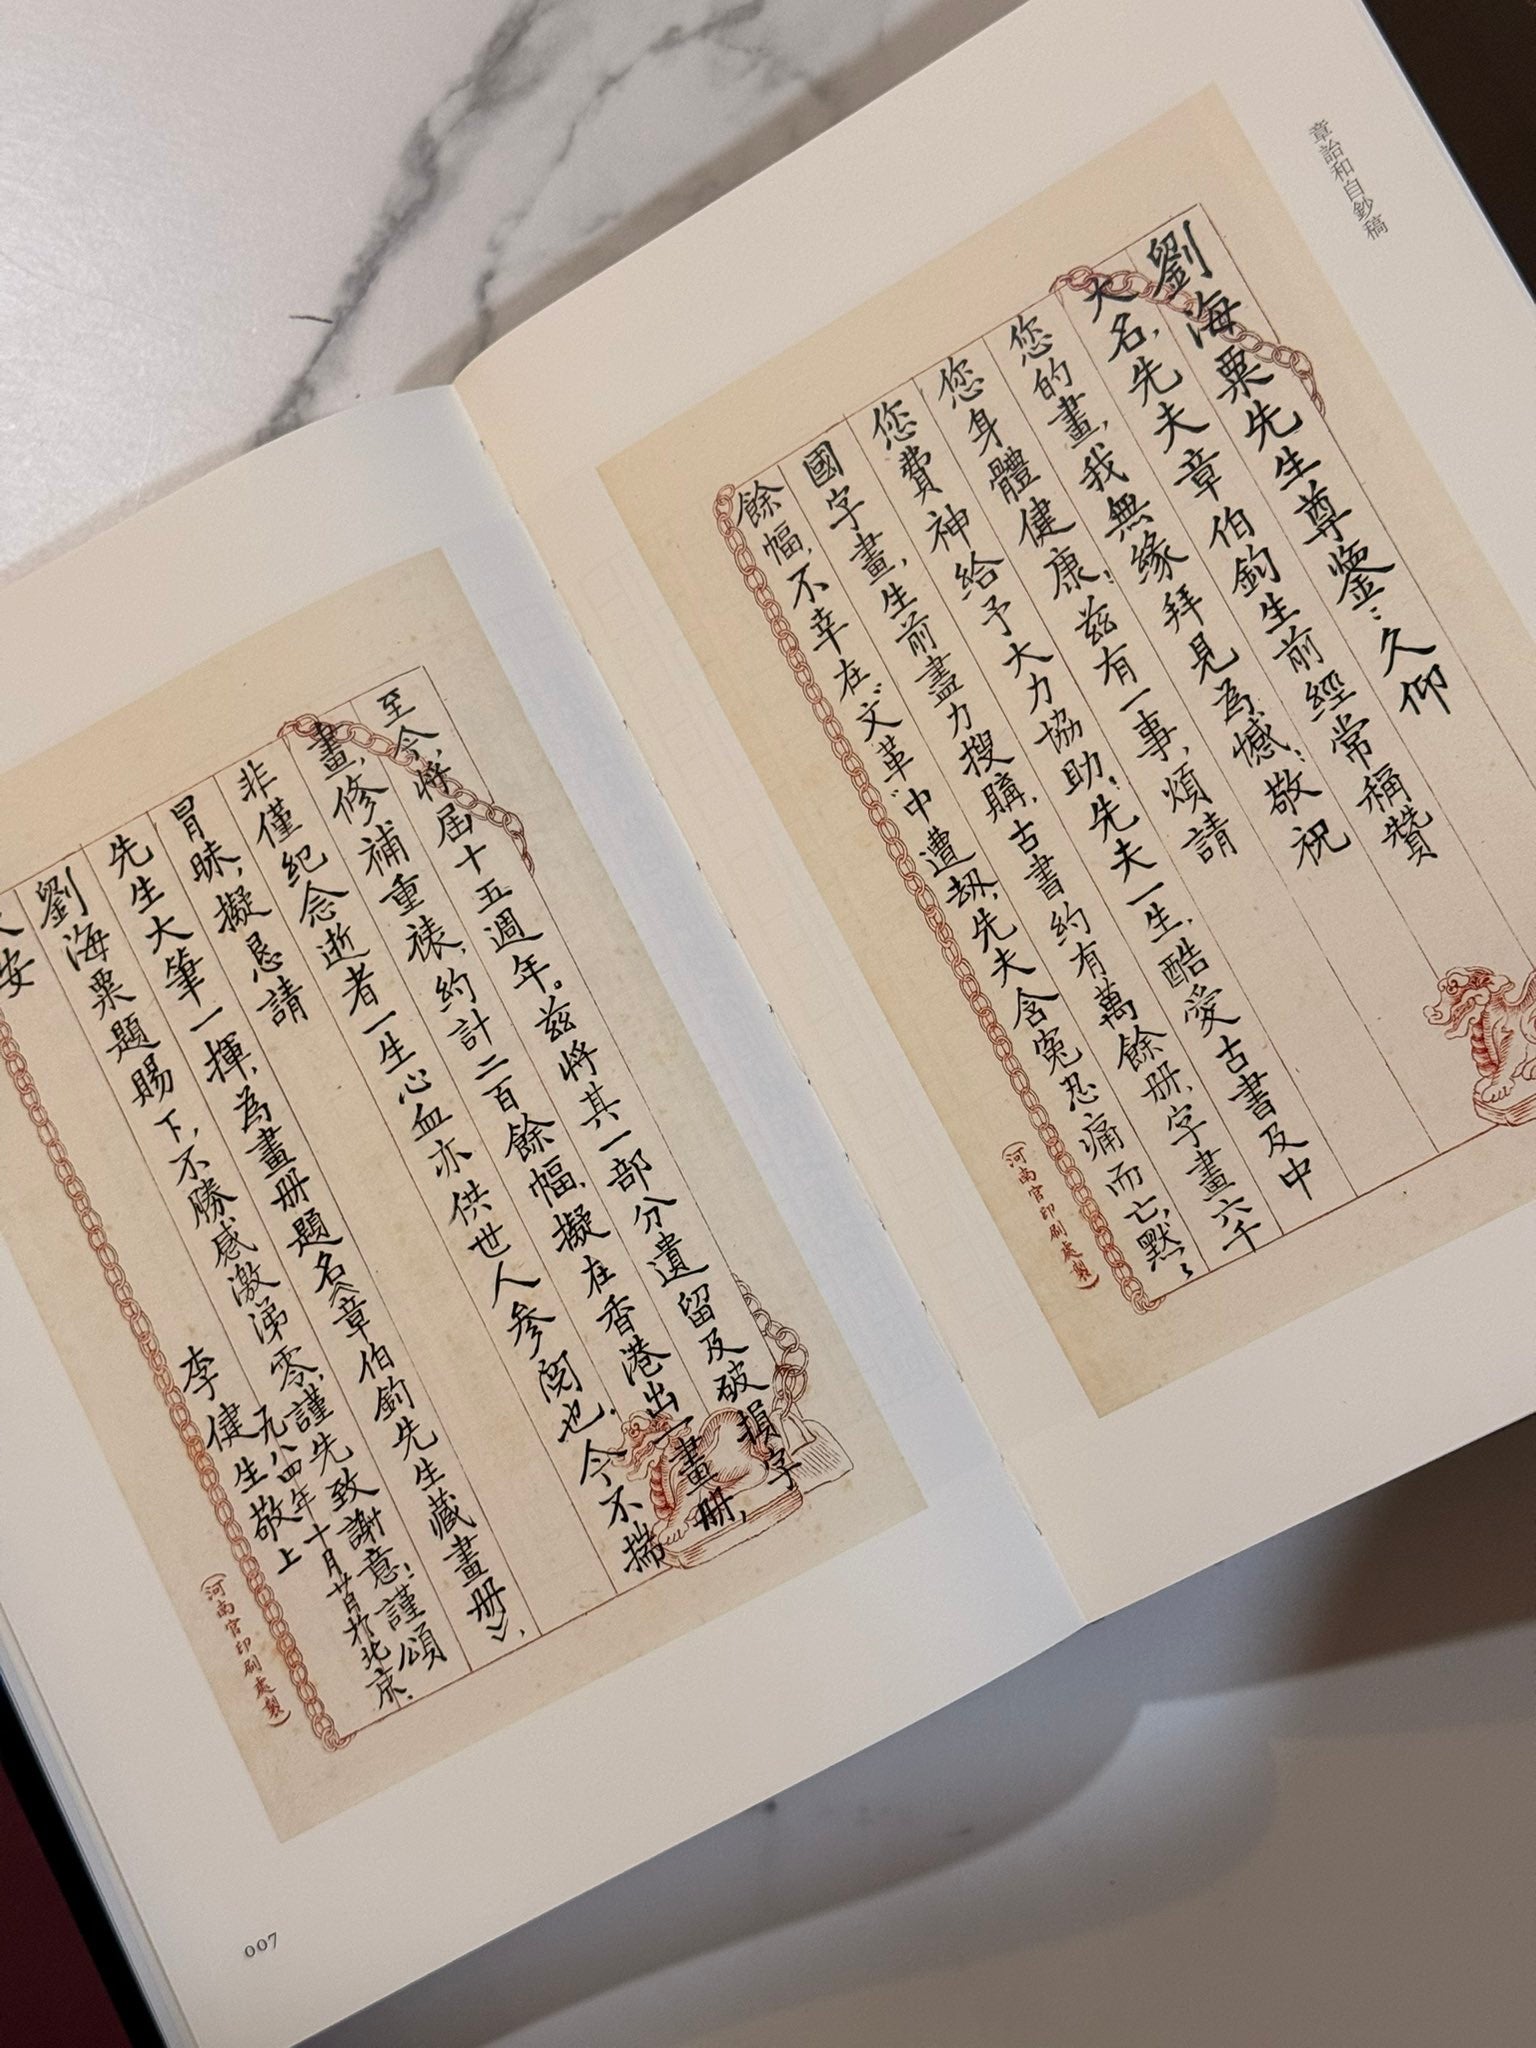 章詒和自鈔稿
劉海粟先生尊鑒：久仰
大名，先夫章伯鈞生前經常稱贊
您的畫，我無緣拜見為憾；敬祝
您身體健康！茲有一事，煩請
您費神給予大力協助。先夫一生，酷爱古書及中
國字畫，生前盡力搜購，古書約有萬餘册，字畫六千
餘幅，不幸在“文革”中遭劫，先夫含冤忍痛而亡，默〻
（河南官印刷處製）
至今，將屆十五週年。茲將其一部分遺留及破損字
畫，修補重裱，約計二百餘幅，擬在香港出一畫册，
非僅紀念逝者一生心血亦供世人參閱也，今不揣
冒昧，擬恳請
先生大筆一揮，為畫册題名《章伯鈞先生藏畫册》，
劉海粟題賜下，不勝感激涕零，謹先致謝意！謹頌
安
李健生敬上
九八四年十月廿日於北京
（河南官印刷處製）
007